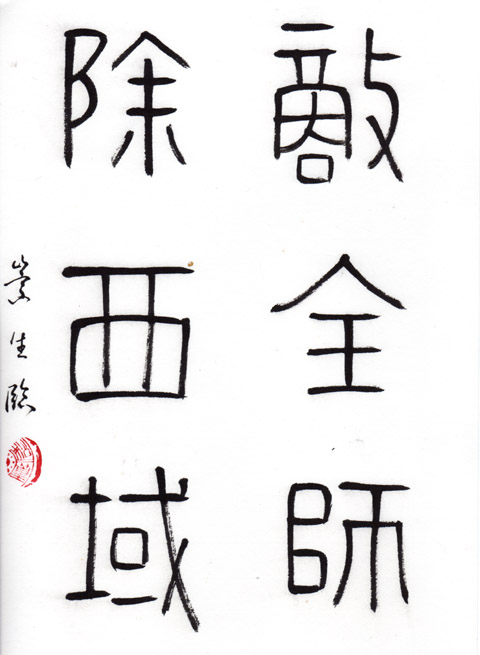 敵全師
除西域
崇生臨